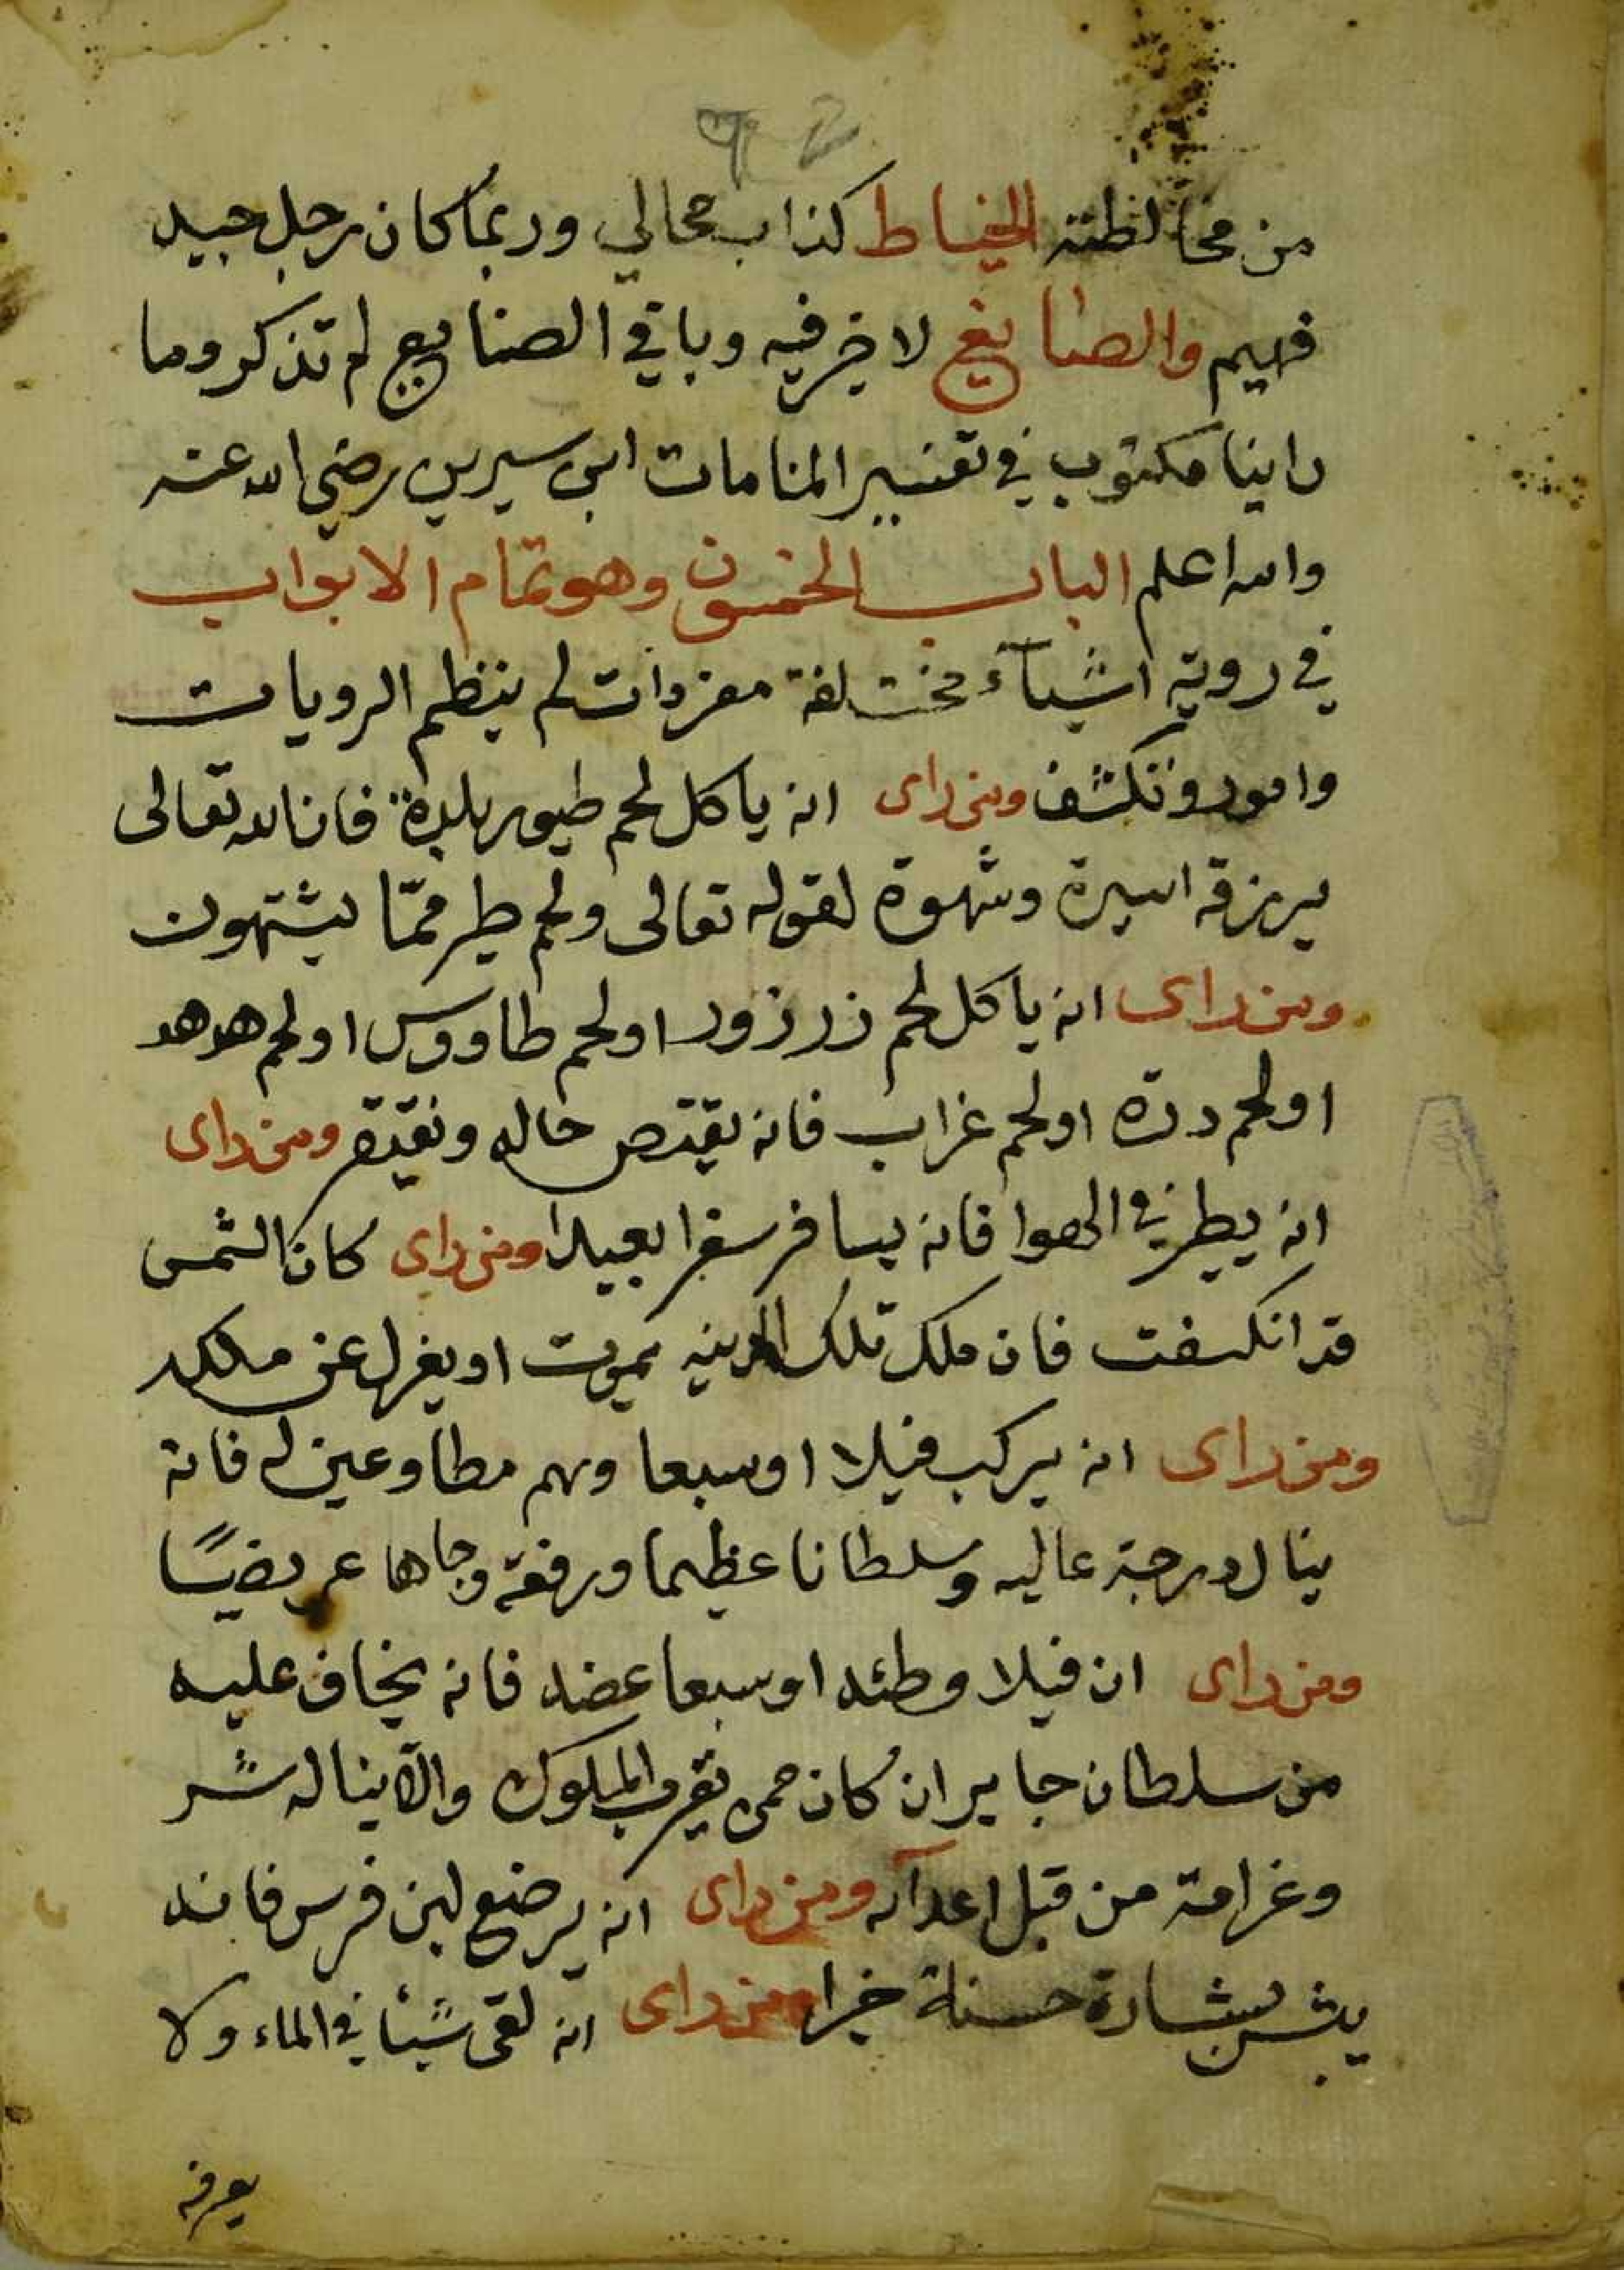 من مخالطته الخياط كذاب محالي وربما كان رجل جيد
فهيم والصايغ لا خير فيه وباقي الصنايع لم تذكر وما
راينا مكتوب في تفسير المنامات ابن سيرين رضي الله عنه
والله اعلم الباب الخمسون وهو تمام الابواب
في روية اشيآء مختلفة مفردات لم ينظم الرويات
وامور وتكشف ومن راى انه ياكل لحم طيور بلدة فان الله تعالى
يرزقه اسيرة وشهوة لقوله تعالى ولحم طير ممّا يشتهون
ومن راى انه ياكل لحم زرزور او لحم طاووس او لحم هدهد
او لحم درة او لحم غراب فانه يقتص حاله ونفيقر ومن راى
انه يطير في الهوا فانه يسافر سفرا بعيدا ومن راى كان الشمس
قد انكسفت فان ملك تلك المدينه يموت او يغزل عن ملكه
ومن راى انه يركب فيلا او سبعا وهم مطاوعين له فانه
ينال درجة عاليه وسلطانا عظيما ورفعة وجاها عريضًا
ومن راى ان فيلا وطئه او سبعا عضه فانه يخاف عليه
من سلطان جاير ان كان ممن يقرب الملوك والا يناله شر
وغرامة من قبل اعدآئه ومن راى انه يرضع لبن فرس فانه
يبشر بشارة حسنة خيرا ومن راى انه لقى شيئًا في الماء ولا
يعرفه